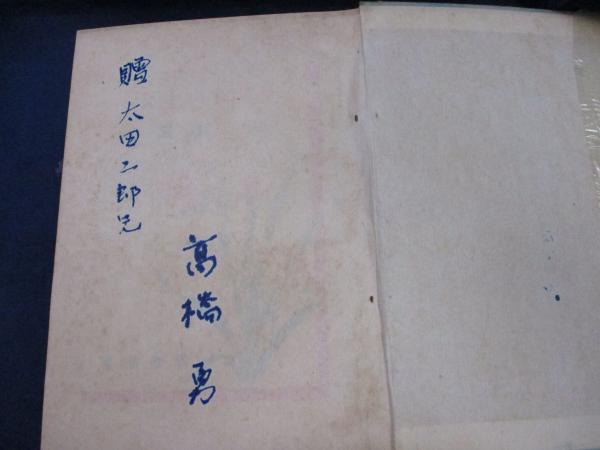 贈 太田二郎兄
高橋勇